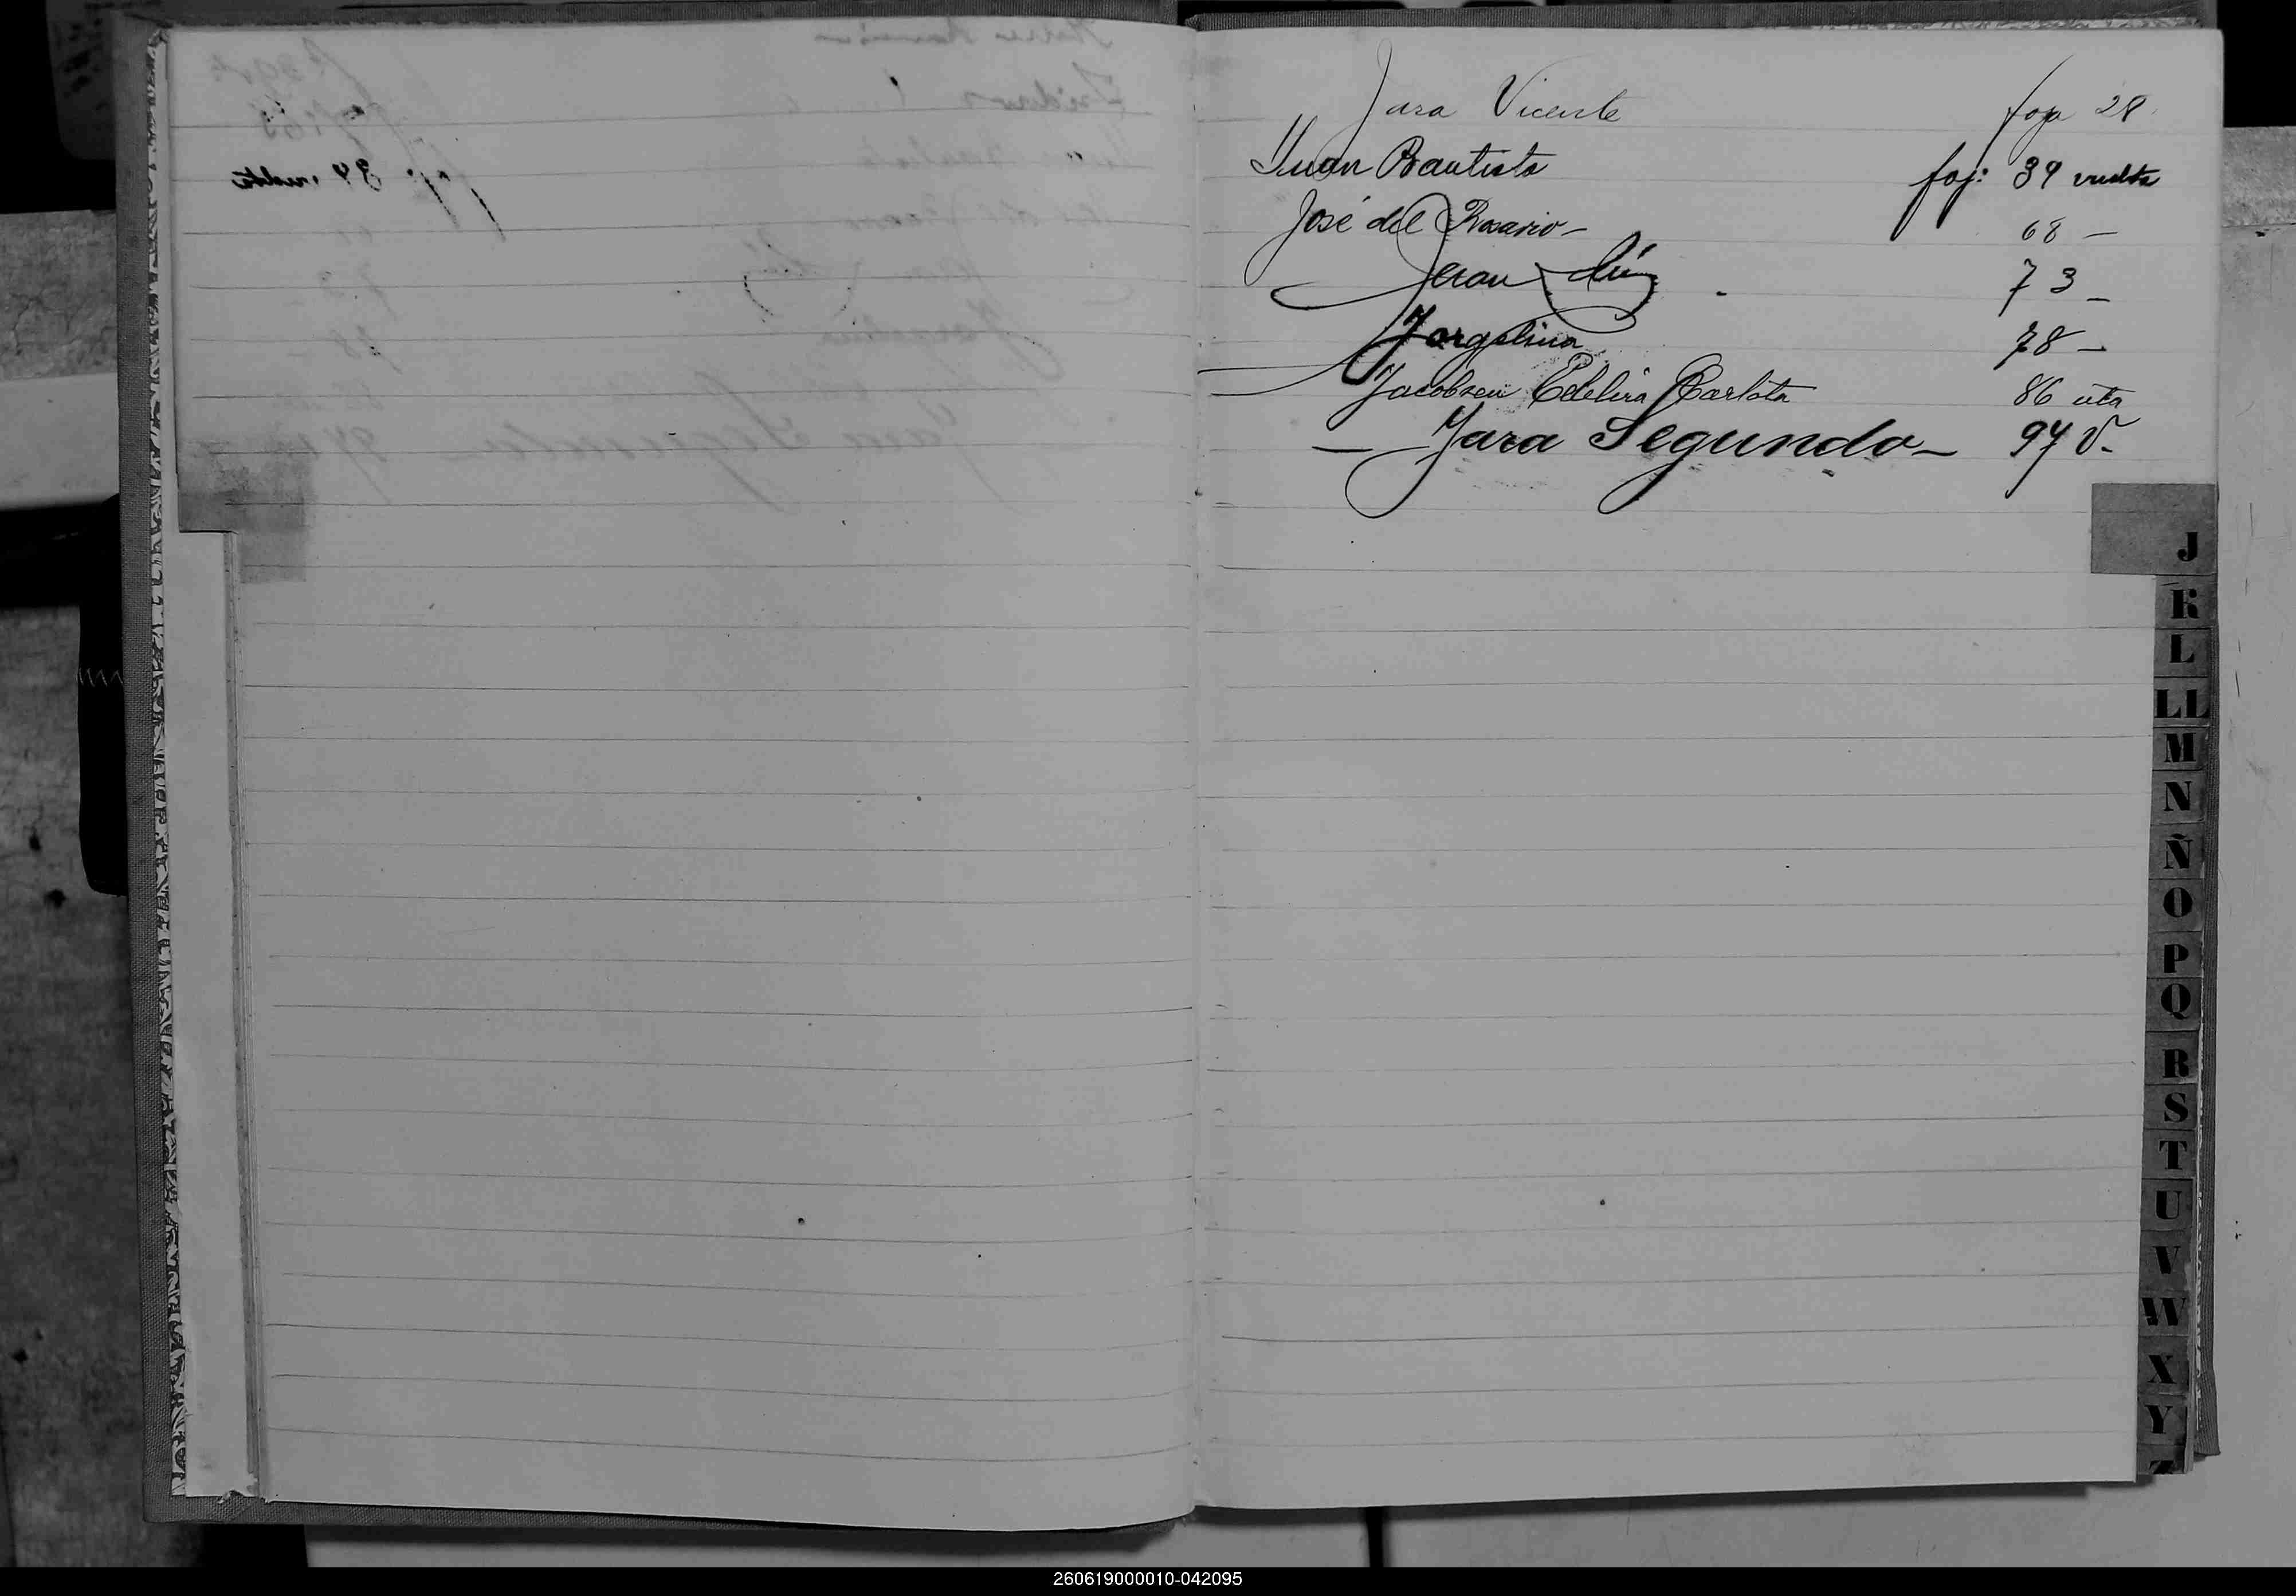 Jara Vicente foja 28
Juan Bautista foj: 39 vuelta
José del Rosario - 68 -
Juan 73 -
Jorgelina 78 -
Jacobsen Edelira Carlota 86 vta
- Jara Segundo - 97 V.
J
K
L
LL
M
N
Ñ
O
P
Q
R
S
T
U
V
W
X
Y
Z
260619000010-042095